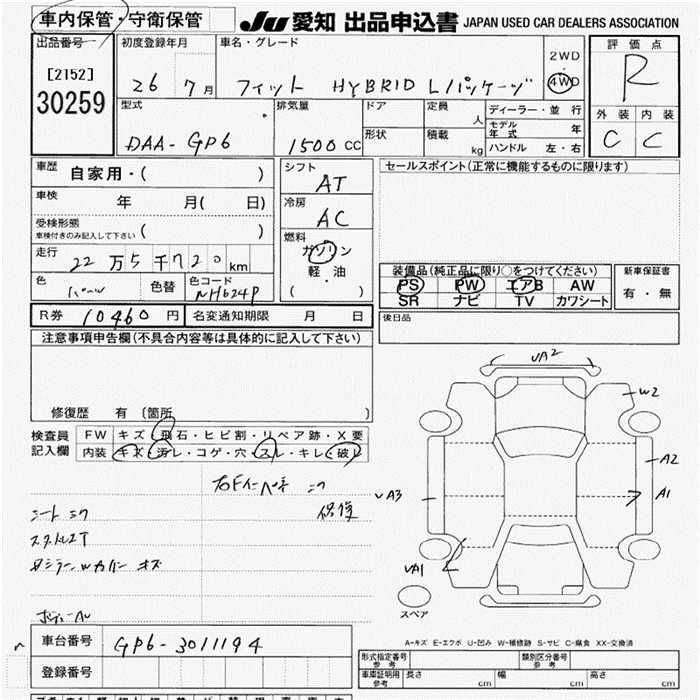 車内保管・守衛保管 JU 愛知 出品申込書 JAPAN USED CAR DEALERS ASSOCIATION
出品番号 初度登録年月 車名・グレード 評価点
[2152] 26 7月 フィット HYBRID Lパッケージ 2WD 4WD R
30259
型式 排気量 ドア 定員 人 ディーラー・並行 外装 内装
DAA-GP6 1500CC 形状 積載 kg モデル年式 年 C C
ハンドル 左・右
車歴 自家用・( ) シフト AT セールスポイント(正常に機能するものに限ります)
車検 年 月( 日) 冷房 AC
受検形態
車検付きのみ記入して下さい ( ) 燃料
走行 22万5千720km ガソリン
軽・油
( )
色 パール 色替 色コード NH624P
装備品(純正品に限り○をつけてください) 新車保証書
PS PW エアB AW 有・無
SR ナビ TV カワシート
R券 10460円 名変通知期限 月 日 後日品
注意事項申告欄(不具合内容等は具体的に記入して下さい)
修復歴 有 〔箇所 〕
検査員記入欄 FW キズ・飛石・ヒビ割・リペア跡・X要
内装 キズ・汚レ・コゲ・穴・スレ・キレ・破レ
シート
UA2
W2
A2
A3
A1
UA1
スペア
A-キズ E-エクボ U-凹み W-補修跡 S-サビ C-腐食 XX-交換済
車台番号 GP6-3011194
登録番号
形式指定番号 参考 類別区分番号 参考
車庫証明用 参考 長さ cm 幅 cm 高さ cm